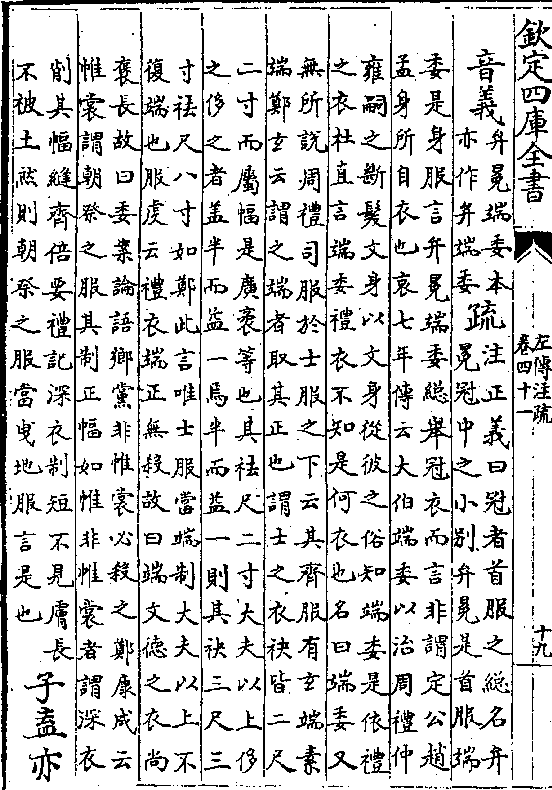 欽定四庫全書
左傳注疏
卷四十一
十九
音義弁冕端委本
亦作弁端委
疏注正義曰冠者首服之緫名弁
冕冠中之小别弁冕是首服端
委是身服言弁冕端委緫舉冠衣而言非謂定公趙
孟身所自衣也哀七年傳云大伯端委以治周禮仲
雍嗣之斷髮文身以文身從彼之俗知端委是依禮
之衣杜直言端委禮衣不知是何衣也名曰端委又
無所說周禮司服於士服之下云其齊服有玄端素
端鄭玄云謂之端者取其正也謂士之衣袂皆二尺
二寸而屬幅是廣袤等也其袪尺二寸大夫以上侈
之侈之者盖半而益一焉半而益一則其袂三尺三
寸袪尺八寸如鄭此言唯士服當端制大夫以上不
復端也服虔云禮衣端正無殺故曰端文德之衣尚
襃長故曰委案論語鄉黨非帷裳必殺之鄭康成云
帷裳謂朝祭之服其制正幅如帷非帷裳者謂深衣
削其幅縫齊倍要禮記深衣制短不見膚長
不被土然則朝祭之服當曳地服言是也
子盍亦